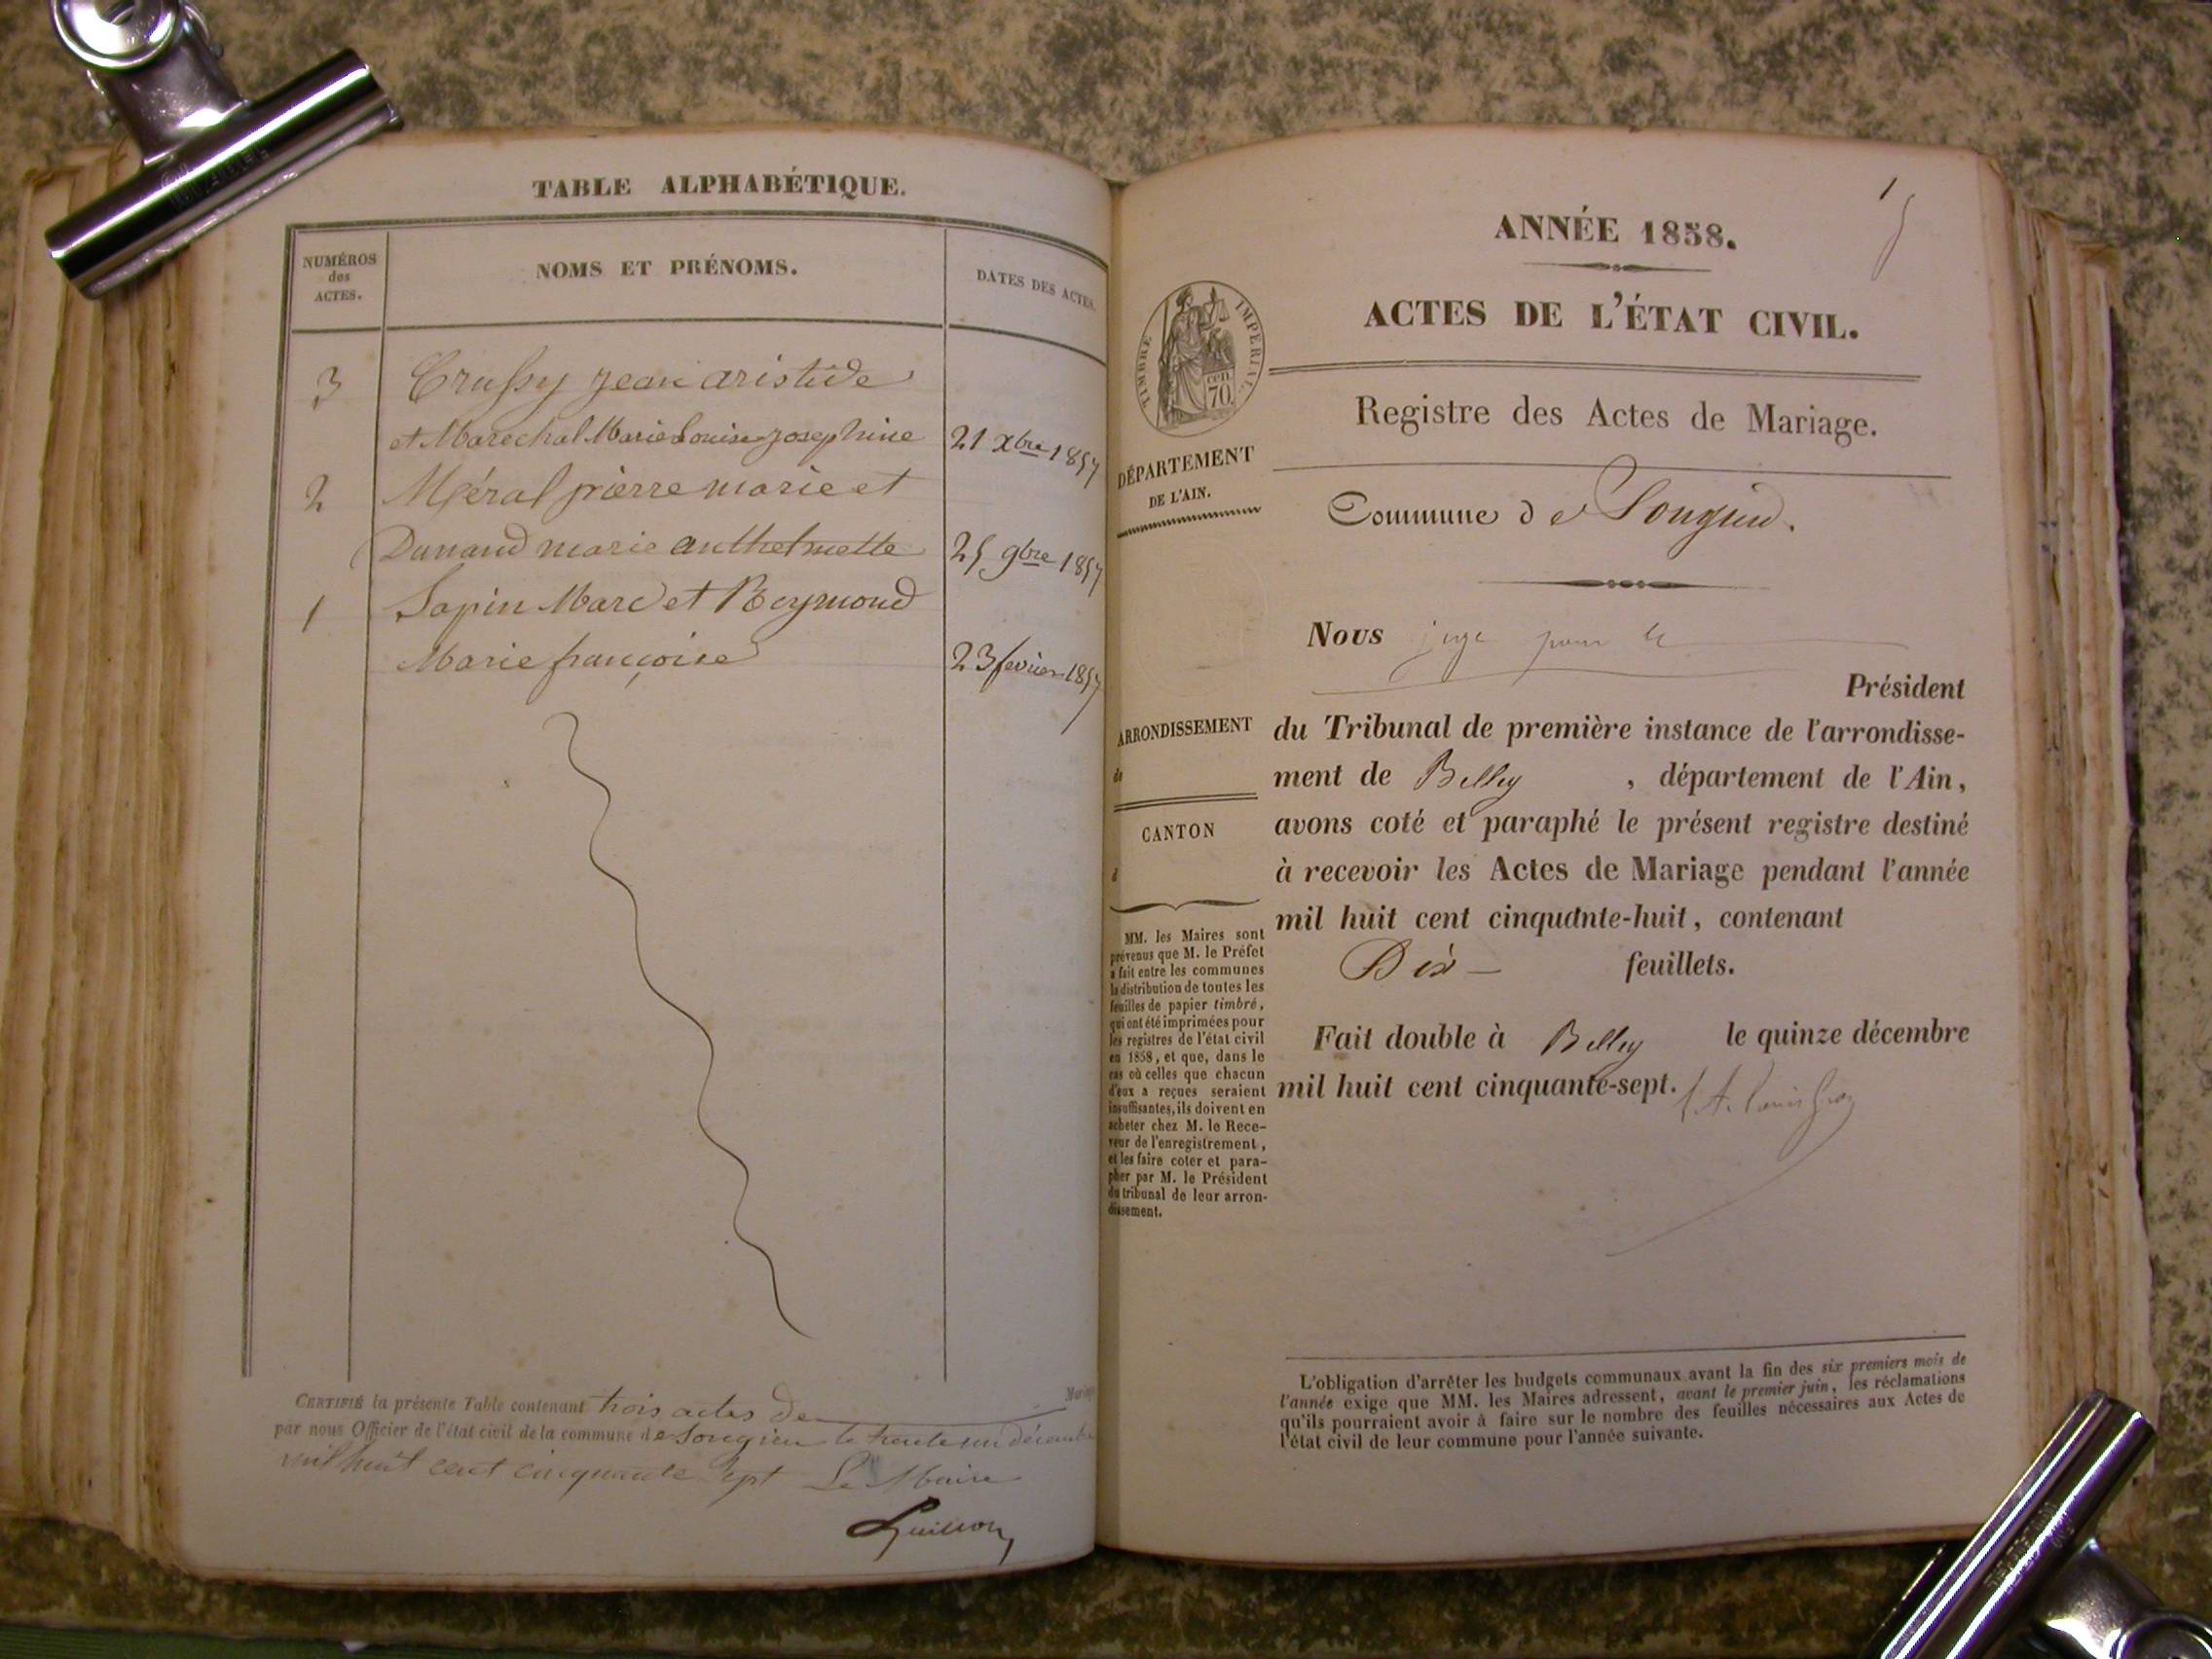 TABLE ALPHABÉTIQUE.
NUMÉROS
des
ACTES.
NOMS ET PRÉNOMS.
DATES DES ACTES.
3 Crussy jean aristide
et Marechal Marie Louise josephine 21 xbre 1857
2 Méral pierre marie et
Dunand marie anthelmette 25 9bre 1857
1 Sapin Marc et Reymond
Marie françoise 23 fevrier 1857
CERTIFIÉ la présente Table contenant trois actes de Mariage
par nous Officier de l'état civil de la commune de Songieu le trente un décembre
mil huit cent cinquante sept Le Maire
Guillon
1
ANNÉE 1858.
ACTES DE L'ÉTAT CIVIL.
TIMBRE IMPÉRIAL.
70 cen
Registre des Actes de Mariage.
DÉPARTEMENT
DE L'AIN.
Commune de Songieu.
Nous juge pour le
Président
du Tribunal de première instance de l'arrondisse-
ment de Belley , département de l'Ain,
avons coté et paraphé le présent registre destiné
à recevoir les Actes de Mariage pendant l'année
mil huit cent cinquante-huit, contenant
Dix feuillets.
Fait double à Belley le quinze décembre
mil huit cent cinquante-sept.
ARRONDISSEMENT
de
CANTON
d
MM. les Maires sont
prévenus que M. le Préfet
a fait entre les communes
la distribution de toutes les
feuilles de papier timbré,
qui ont été imprimées pour
les registres de l'état civil
en 1858, et que, dans le
cas où celles que chacun
d'eux a reçues seraient
insuffisantes, ils doivent en
acheter chez M. le Rece-
veur de l'enregistrement,
et les faire coter et para-
pher par M. le Président
du tribunal de leur arron-
dissement.
L'obligation d'arrêter les budgets communaux avant la fin des six premiers mois de
l'année exige que MM. les Maires adressent, avant le premier juin, les réclamations
qu'ils pourraient avoir à faire sur le nombre des feuilles nécessaires aux Actes de
l'état civil de leur commune pour l'année suivante.